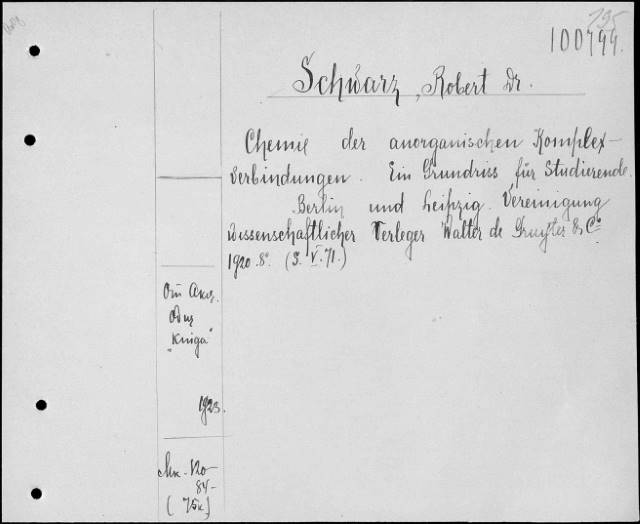 195
100799.
Schwarz, Robert Dr.
Chemie der anorganischen Komplex-
verbindungen. Ein Grundriss für Studierende.
Berlin und Leipzig. Vereinigung
wissenschaftlicher Verleger Walter de Gruyter & Co
1920. 8°. (S. V. 71.)
От Акц.
"Kniga"
1923.
84-